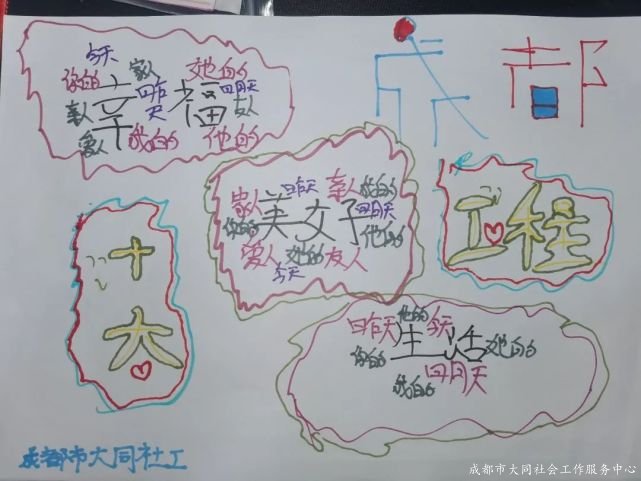 今天 家人 她的
你的 幸 昨天 福 明天
亲人 友人
爱人 我的 他的
成都
家人 昨天 亲人 我的
你的 美好 明天 他的
爱人 她的 友人
今天
工程
十
大
昨天 他的 今天
你的 生活 她的
我的 明天
成都市大同社工
成都市大同社会工作服务中心